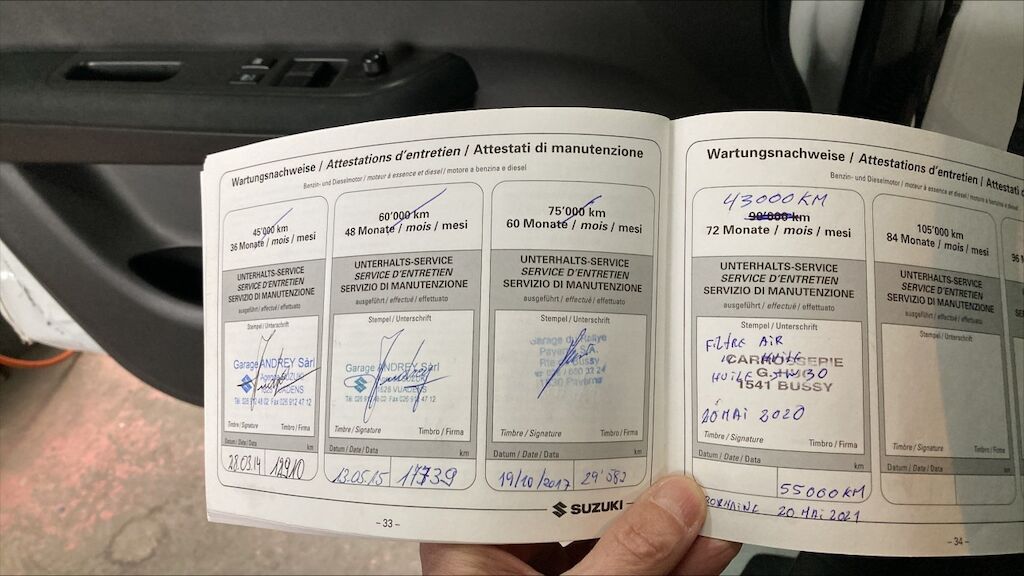 Wartungsnachweise / Attestations d'entretien / Attestati di manutenzione
Benzin- und Dieselmotor / moteur à essence et diesel / motore a benzina e diesel
45'000 km
36 Monate / mois / mesi
UNTERHALTS-SERVICE
SERVICE D'ENTRETIEN
SERVIZIO DI MANUTENZIONE
ausgeführt / effectué / effettuato
Stempel / Unterschrift
Garage ANDREY Sàrl
Timbre / Signature Timbro / Firma
Datum / Date / Data km
28.03.14 12910
60'000 km
48 Monate / mois / mesi
UNTERHALTS-SERVICE
SERVICE D'ENTRETIEN
SERVIZIO DI MANUTENZIONE
ausgeführt / effectué / effettuato
Stempel / Unterschrift
Garage ANDREY Sàrl
1628 VUADENS
Tél. 026 912 48 02 Fax 026 912 47 12
Timbre / Signature Timbro / Firma
Datum / Date / Data km
13.05.15 17739
75'000 km
60 Monate / mois / mesi
UNTERHALTS-SERVICE
SERVICE D'ENTRETIEN
SERVIZIO DI MANUTENZIONE
ausgeführt / effectué / effettuato
Stempel / Unterschrift
1530 Payerne
Timbre / Signature Timbro / Firma
Datum / Date / Data km
19/10/2017 29'582
SUZUKI
- 33 -
Wartungsnachweise / Attestations d'entretien / Attestati
Benzin- und Dieselmotor / moteur à essence et diesel / motore a benzina e diesel
43000 KM
90'000 km
72 Monate / mois / mesi
UNTERHALTS-SERVICE
SERVICE D'ENTRETIEN
SERVIZIO DI MANUTENZIONE
ausgeführt / effectué / effettuato
Stempel / Unterschrift
FILTRE AIR
CARROSSERIE
HUILE
1541 BUSSY
20 MAI 2020
Timbre / Signature Timbro / Firma
Datum / Date / Data km
55000 KM
PROCHAINE 20 MAI 2021
105'000 km
84 Monate / mois / mesi
UNTERHALTS-SERVICE
SERVICE D'ENTRETIEN
SERVIZIO DI MANUTENZIONE
ausgeführt / effectué / effettuato
Stempel / Unterschrift
Timbre / Signature Timbro / Firma
Datum / Date / Data km
96 M
- 34 -